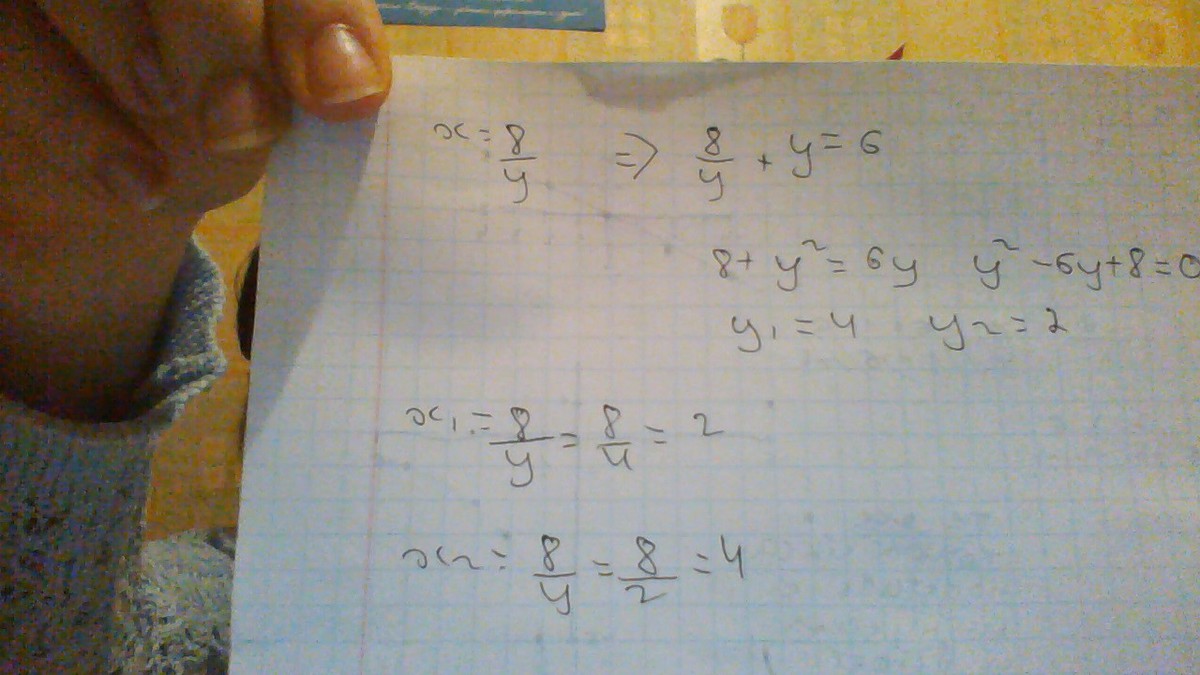 x = 8/y => 8/y + y = 6
8 + y² = 6y y² - 6y + 8 = 0
y₁ = 4 y₂ = 2
x₁ = 8/y = 8/4 = 2
x₂ = 8/y = 8/2 = 4